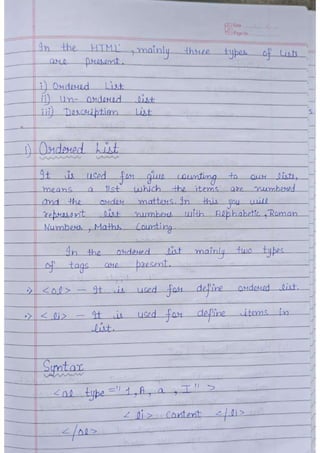 Date
Page No
In the HTML, mainly three types of Lists
are present.
i) Ordered List
ii) Un-ordered list
iii) Description List
i) Ordered List
It is used for give counting to our lists,
means a list which the items are numbered
and the order matters. In this you will
represent list numbers with Alphabetic, Roman
Numbers, Maths Counting
In the ordered list mainly two types
of tags are present.
<ol> - It is used for define ordered list.
<li> - It is used for define items in
list.
Syntax
<ol type="1,A,a,I">
<li> Content </li>
</ol>